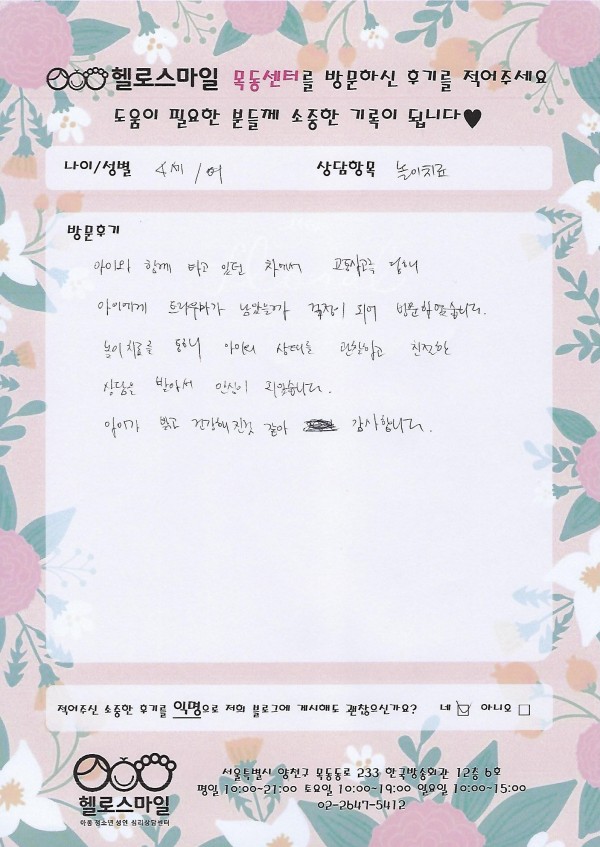 헬로스마일 목동센터를 방문하신 후기를 적어주세요
도움이 필요한 분들께 소중한 기록이 됩니다♥
나이/성별 4세 / 여 상담항목 놀이치료
방문후기
아이와 함께 타고 있던 차에서 교통사고를 당해
아이에게 트라우마가 남았을까 걱정이 되어 방문하였습니다.
놀이치료를 통해 아이의 상태를 관찰하고 친절한
상담을 받아서 안심이 되었습니다.
아이가 밝고 건강해진것 같아 감사합니다.
적어주신 소중한 후기를 익명으로 저희 블로그에 게시해도 괜찮으신가요? 네 ☑ 아니오 □
헬로스마일
아동 청소년 성인 심리상담센터
서울특별시 양천구 목동동로 233 한국방송회관 12층 6호
평일 10:00~21:00 토요일 10:00~19:00 일요일 10:00~15:00
02-2647-5412